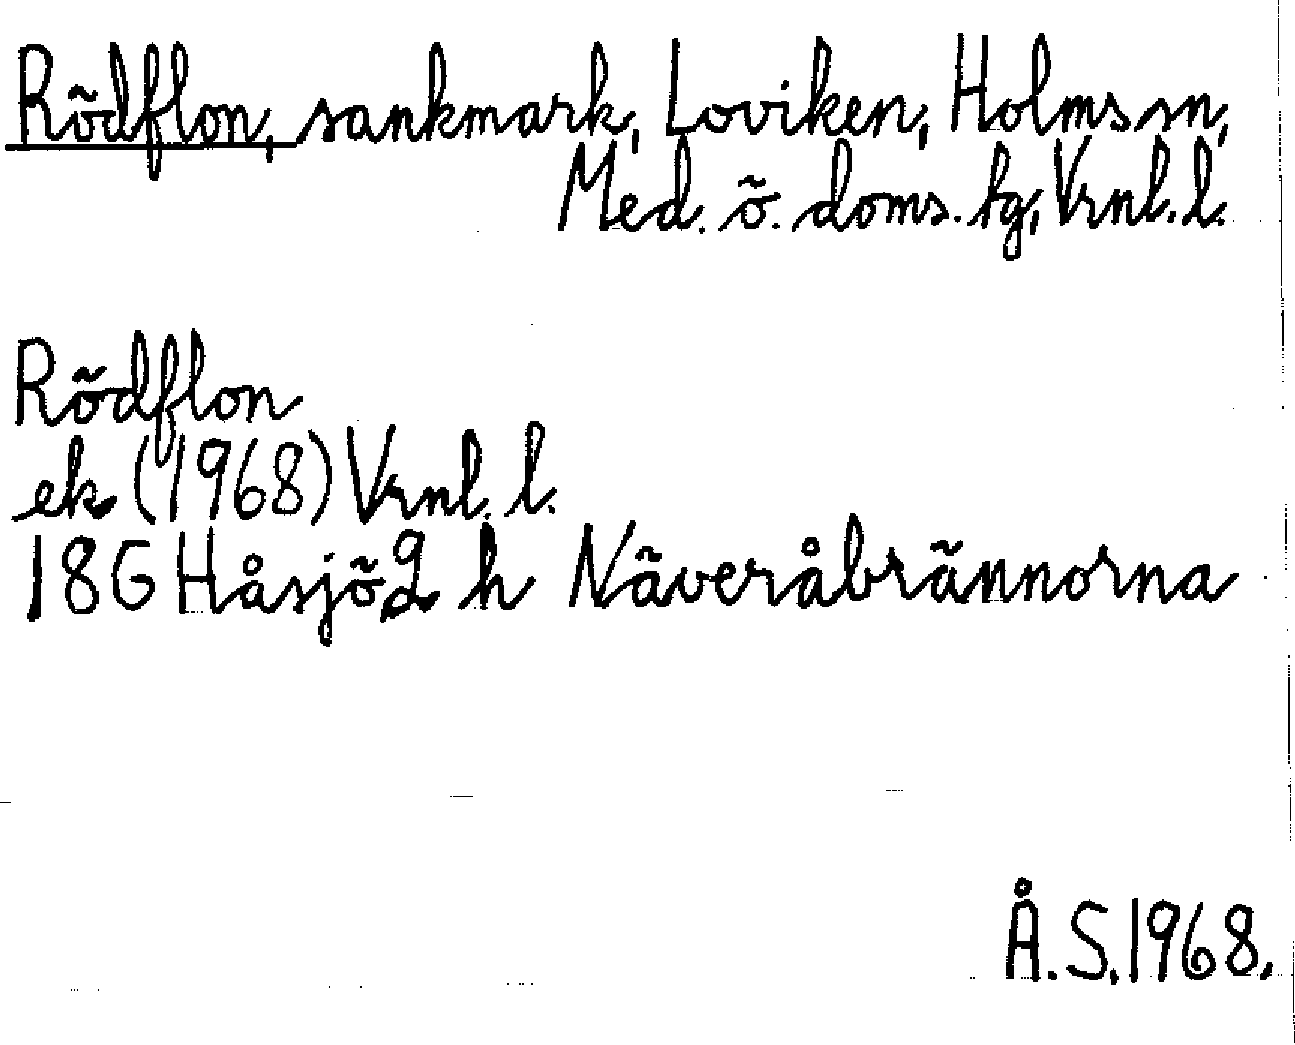 Rödflon, sankmark, Loviken, Holms sn,
Med. ö. doms. tg, Vrnl. l.
Rödflon
ek (1968) Vrnl. l.
18G Håsjö 2 h Näveråbrännorna
Å.S. 1968.